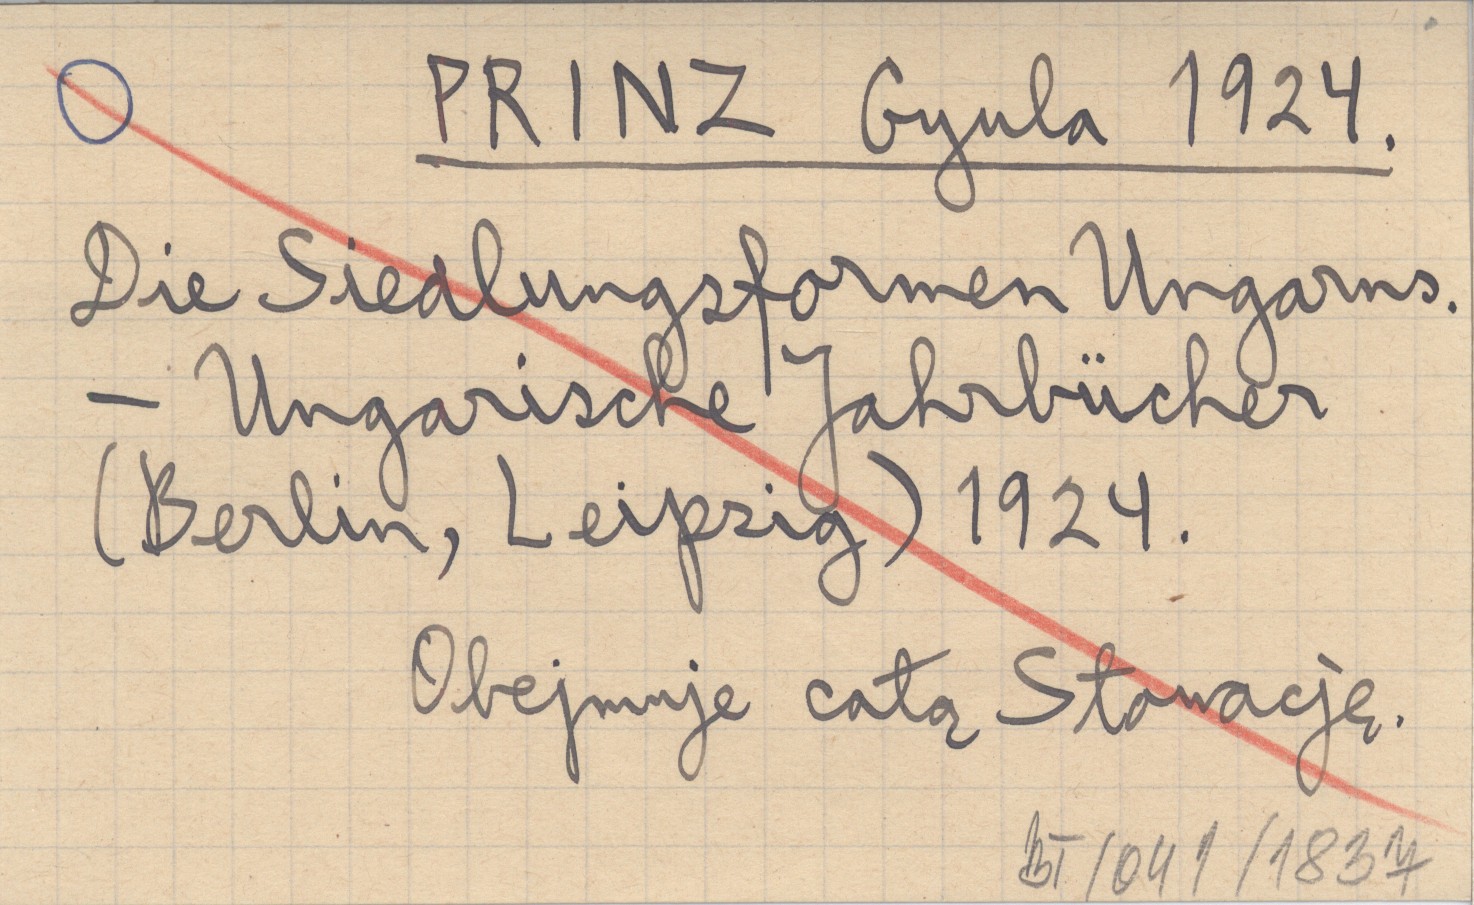 PRINZ Gyula 1924.
Die Siedlungsformen Ungarns.
– Ungarische Jahrbücher
(Berlin, Leipzig) 1924.
Obejmuje całą Słowację.
BT/041/1837